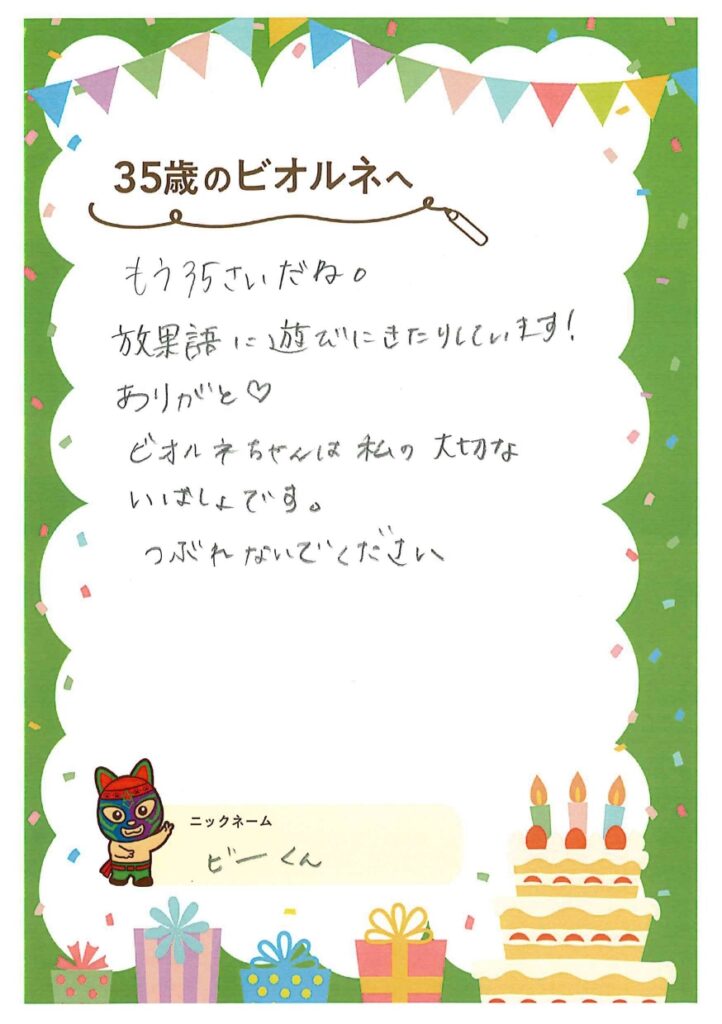 35歳のビオルネへ
もう35さいだね。
放果語に遊びにきたりしています!
ありがと♡
ビオルネちゃんは私の大切な
いばしょです。
つぶれないでください
ニックネーム
ビーくん